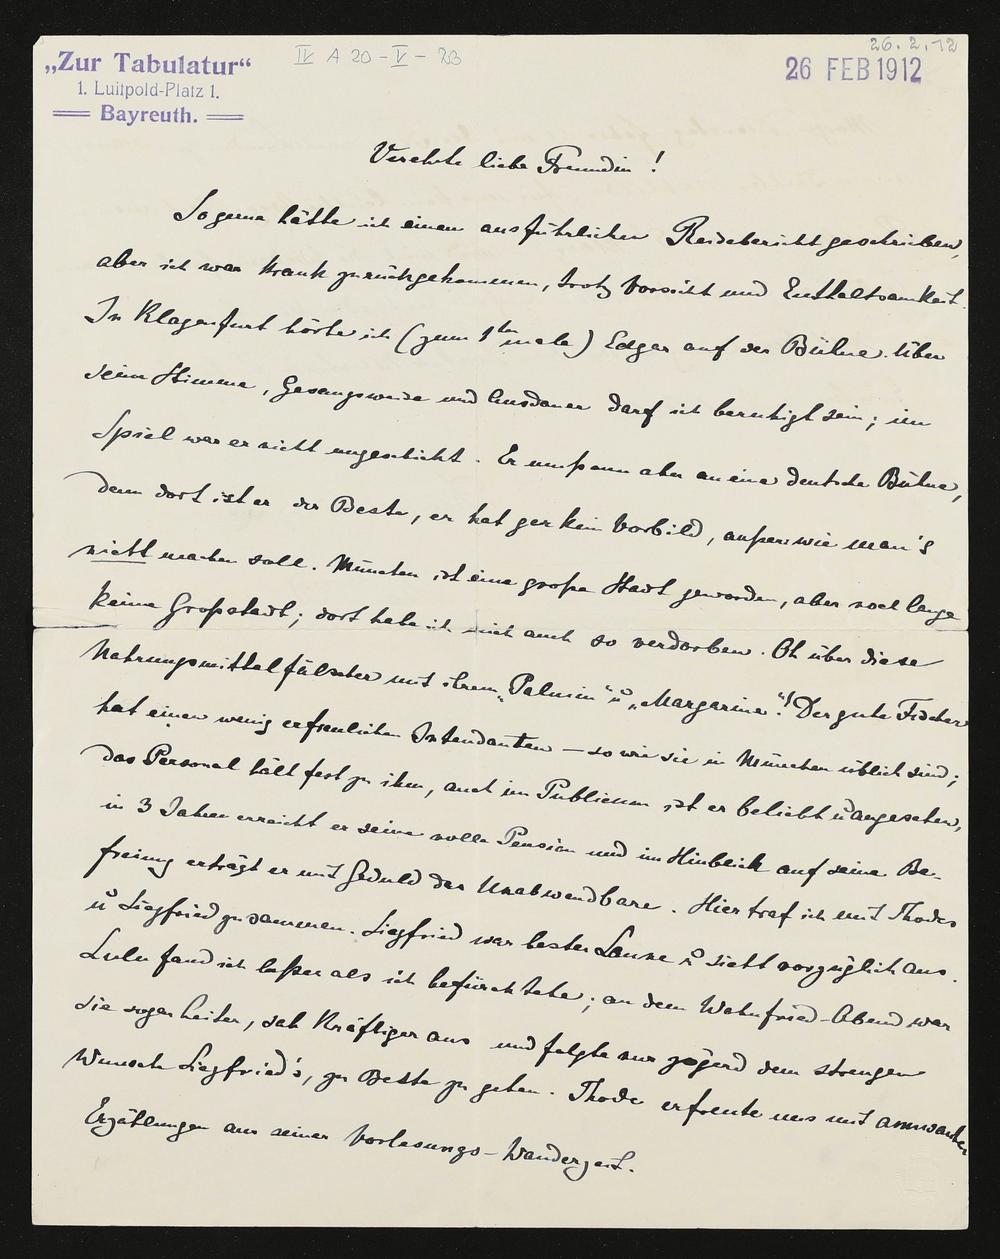 „Zur Tabulatur“
1. Luitpold-Platz 1.
Bayreuth.
IV A 20 - V - 23
26. 2. 12
26 FEB 1912
Verehrte liebe Freundin!
So gerne hätte ich einen ausführlichen Reisebericht geschrieben,
aber ich war krank zurückgekommen, trotz Vorsicht und Enthaltsamkeit.
In Klagenfurt hörte ich (zum 1ten male) Edgar auf der Bühne. Über
seine Stimme, Gesangsweise und Ausdauer darf ich beruhigt sein; im
Spiel war er nicht ungeschickt. Er muß nun aber an eine deutsche Bühne,
denn dort ist er der Beste, er hat gar kein Vorbild, außer wie man's
nicht machen soll. München ist eine große Stadt geworden, aber noch lange
keine Großstadt; dort habe ich mich auch so verdorben. Oh über diese
Nahrungsmittelfälscher mit ihrem „Palmin“ u „Margarine“! Der gute Fischer
hat einen wenig erfreulichen Intendanten – so wie sie in München üblich sind;
das Personal hält fest zu ihm, auch im Publicum ist er beliebt u angesehen,
in 3 Jahren erreicht er seine volle Pension und im Hinblick auf seine Be-
freiung erträgt er mit Geduld das Unabwendbare. Hier traf ich mit Thodes
u Siegfried zusammen. Siegfried war bester Laune u sieht vorzüglich aus.
Lulu fand ich besser als ich befürchtete; an dem Wahnfried-Abend war
sie sogar heiter, sah kräftiger aus und folgte nur zögernd dem strengen
Wunsch Siegfried's, zu Bette zu gehen. Thode erfreute uns mit
Erzählungen aus seiner Vorlesungs-Wanderzeit.